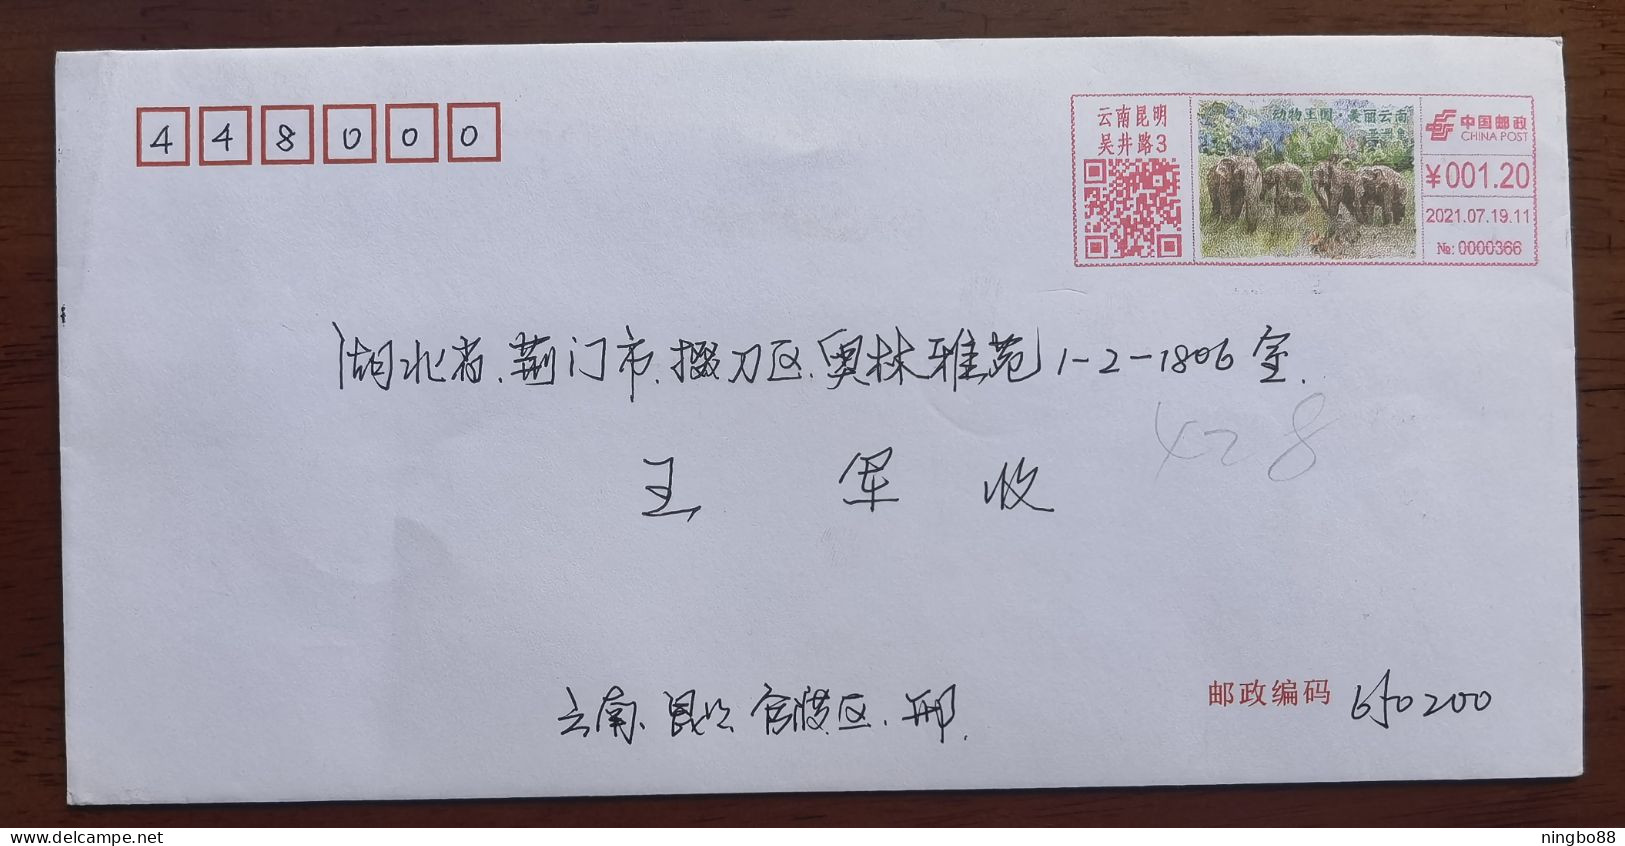 448000
云南昆明
吴井路3
动物王国·美丽云南
中国邮政
CHINA POST
¥001.20
2021.07.19.11
№:0000366
湖北省.荆门市.掇刀区.奥林雅苑1-2-1806室.
428
王 军 收
云南.昆明 官渡区.邢.
邮政编码 650200
www.delcampe.net
ningbo88